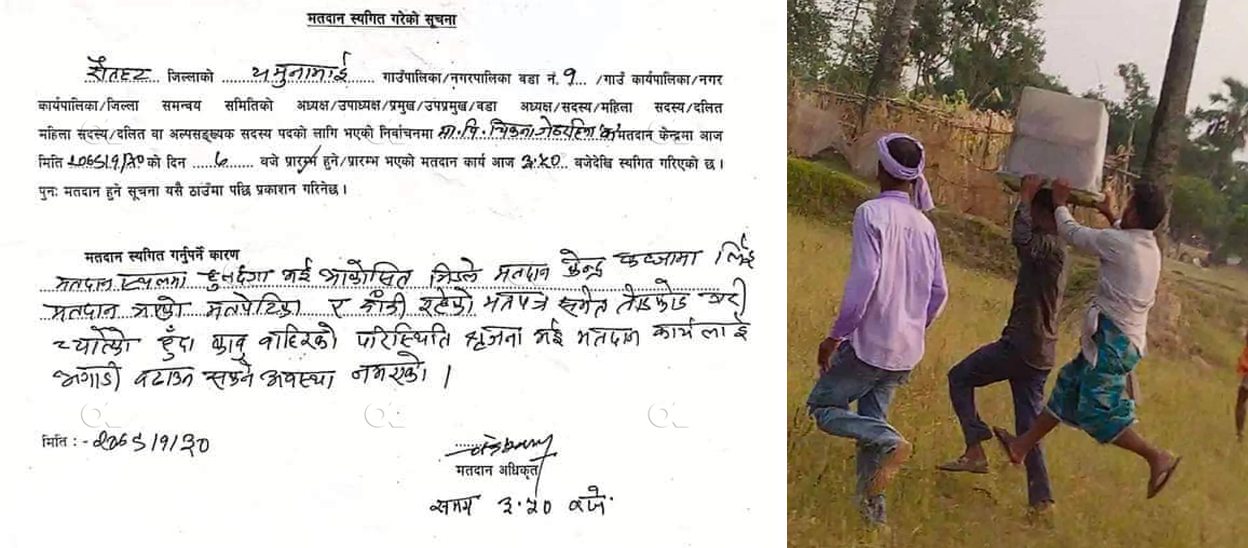 मतदान स्थगित गरेको सूचना
रौतहट जिल्लाको यमुनामाई गाउँपालिका/नगरपालिका वडा नं. १ /गाउँ कार्यपालिका/नगर
कार्यपालिका/जिल्ला समन्वय समितिको अध्यक्ष/उपाध्यक्ष/प्रमुख/उपप्रमुख/वडा अध्यक्ष/सदस्य/महिला सदस्य/दलित
महिला सदस्य/दलित वा अल्पसङ्ख्यक सदस्य पदको लागि भएको निर्वाचनमा मा.वि. मतदान केन्द्रमा आज
मिति को दिन बजे प्रारम्भ हुने/प्रारम्भ भएको मतदान कार्य आज ३:५० बजेदेखि स्थगित गरिएको छ।
पुनः मतदान हुने सूचना यसै ठाउँमा पछि प्रकाशन गरिनेछ।
मतदान स्थगित गर्नुपर्ने कारण
मतदान स्थलमा भई आक्रोसित भिडले मतदान केन्द्र कब्जामा लिई
मतदान मतपेटिका र बाँकी रहेको मतपत्र समेत तोडफोड गरी
च्यातेको हुँदा काबु बाहिरको परिस्थिति सृजना भई मतदान कार्यलाई
अगाडी बढाउन सक्ने अवस्था नभएको।
मिति :-
मतदान अधिकृत
समय ३:५० बजे